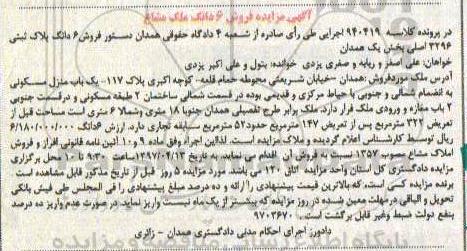 آگهی مزایده فروش ۶ دانگ ملک مشاع
در پرونده کلاسه ۹۴۰۴۱۹ اجرایی طی رأی صادره از شعبه ۴ دادگاه حقوقی همدان دستور فروش ۶ دانگ پلاک ثبتی
۳۲۹۶ اصلی بخش یک همدان
خواهان: علی اصغر و ربابه و صغری یزدی خوانده: بتول و علی اکبر یزدی
آدرس ملک موردفروش: همدان -خیابان شریعتی محوطه حمام قلعه- کوچه اکبری پلاک ۱۱۷- یک باب منزل مسکونی
به انضمام شمالی و جنوبی با حیاط مرکزی و قدیمی بوده در قسمت شمالی ساختمان ۲ طبقه مسکونی و درقسمت جنوبی
۲ باب مغازه و ورودی ملک قرار دارد. ملک برابر طرح تفصیلی همدان جنوبا ۱۸ متری وشمالا ۶ متری است مساحت قبل از
تعریض ۳۲۴ مترمربع پس از تعریض ۱۴۷ مترمربع حدود۵۲ مترمربع سابقه تجاری دارد. ارزش ۶دانگ ۶/۱۸۰/۰۰۰/۰۰۰
ریال توسط کارشناس اعلام گردیده و ملاک مزایده است. لذااین اجراء وفق ماده ۹ و۱۰ آئین نامه قانونی افراز و فروش
املاک مشاع مصوب ۱۳۵۷ نسبت به فروش آن اقدام می نماید. به تاریخ ۱۳۹۷/۰۴/۱۳ ساعت ۹:۳۰ تا ۱۰ محل برگزاری
مزایده دادگستری کل استان واحد مزایده اتاق ۱۲۰ می باشد. مورد مزایده ۵ روز قبل از تاریخ مذکور قابل مشاهده است
برنده مزایده کسی است، که بالاترین قیمت پیشنهادی را ارائه و ده درصد مبلغ پیشنهادی را فی المجلس طی فیش بانکی
تحویل و الباقی درمهلت معین شده در روز مزایده که بیشتر از یک ماه نیست واریز نماید. در صورت عدم واریز ده درصد
بنفع دولت ضبط وغیر قابل برگشت است. ۹۷۰۳۶۷۰
دادورز اجرای احکام مدنی دادگستری همدان - زائری